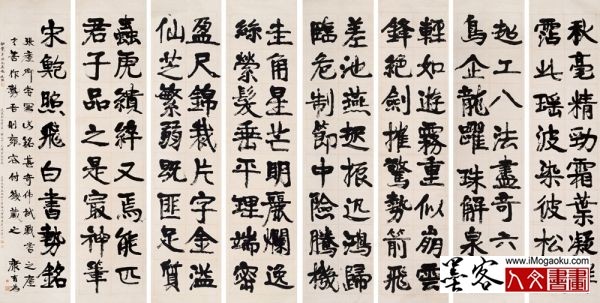 秋毫精勁霜葉凝鮮
霑此瑶波染彼松
超工八法盡奇六
鳥企龍躍珠解泉
輕如遊霧重似崩雲
鋒絕劍摧驚勢箭飛
差池燕起振迅鴻歸
臨危制節中險騰機
圭角星芒明麗爛逸
絲縈髮垂平理端密
盈尺錦裁片字金溢
仙芝繁弱既匪足質
蟲虎績綷又焉能匹
君子品之是㝡神筆
宋鮑照飛白書勢銘
康有為
墨客 人文書畫
www.iMogaoku.com